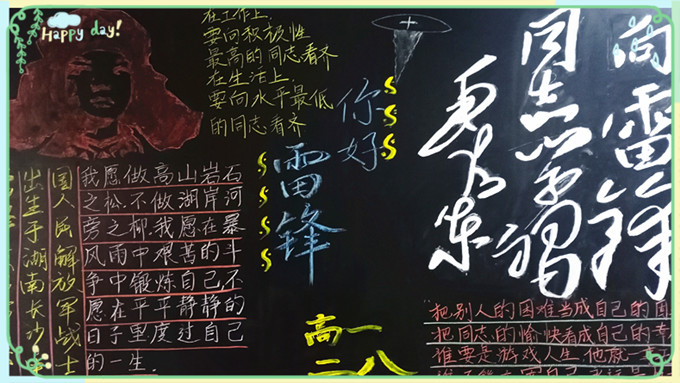 Happy day!
在工作上.
要向积极性
最高的同志看齐
在生活上.
要向水平最低
的同志看齐
你好
雷锋
向雷锋
同志学习
毛泽东
国人民解放军战士
出生于湖南长沙
我愿做高山岩石
之松.不做湖岸河
旁之柳.我愿在暴
风雨中艰苦的斗
争中锻炼自己不
愿在平平静静的
日子里度过自己
的一生.
高一
二八
"把别人的困难当成自己的困
把同志的愉快看成自己的幸
谁要是游戏人生他就一事